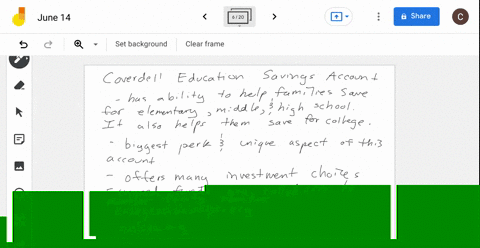 June 14
6 / 20
Share
C
Set background
Clear frame
Coverdell Education Savings Account
- has ability to help families save
for elementary, middle, & high school.
It also helps them save for college.
- biggest perk & unique aspect of this
account
- offers many investment choices